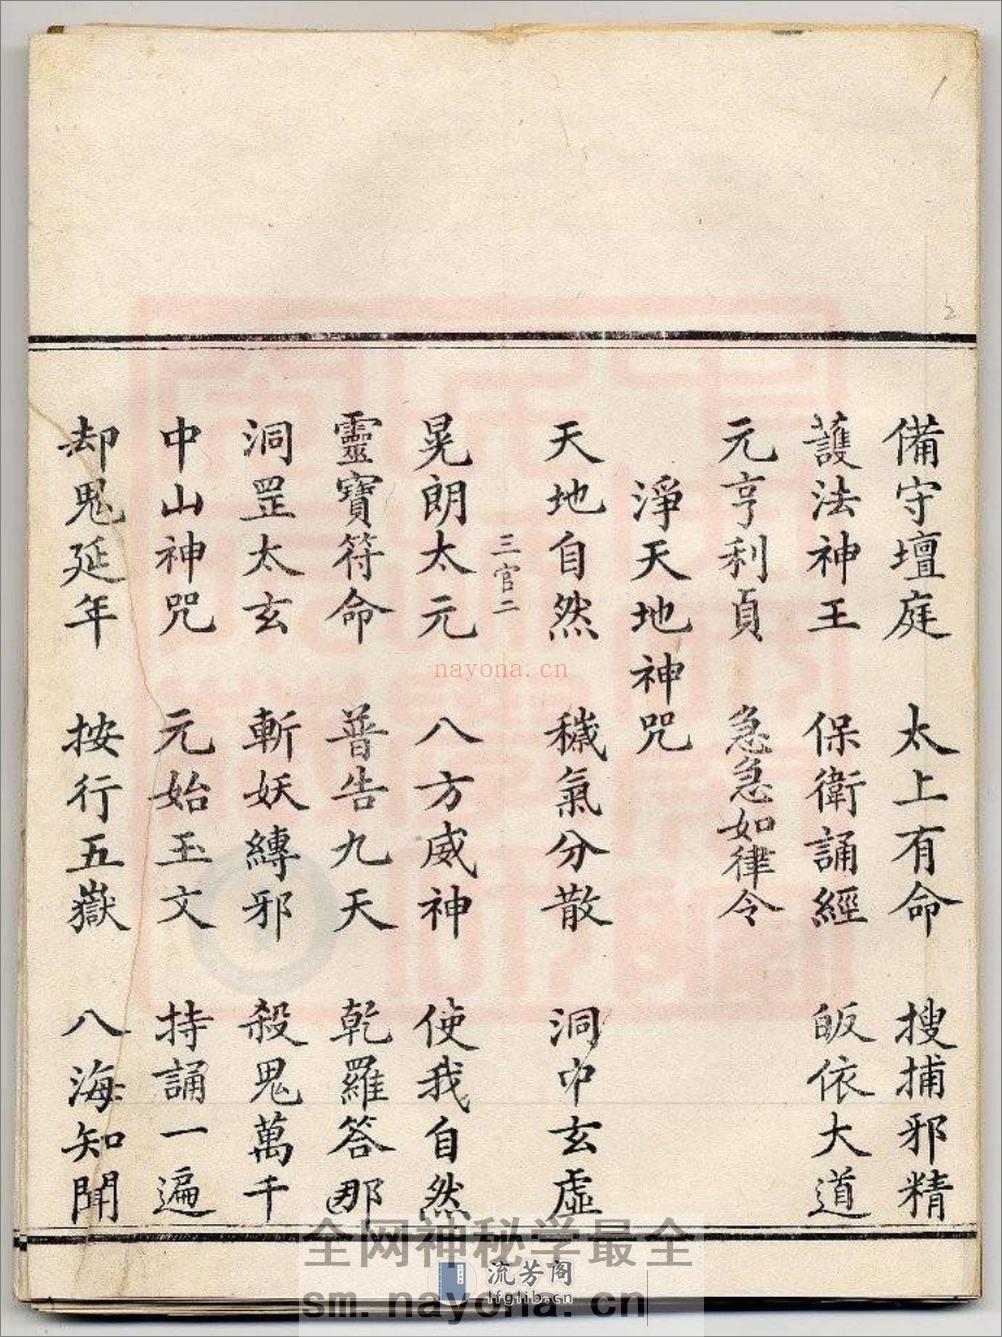 備守壇庭 太上有命 搜捕邪精
護法神王 保衛誦經 皈依大道
元亨利貞 急急如律令
淨天地神咒
天地自然 穢氣分散 洞中玄虛
三官二
晃朗太元 八方威神 使我自然
靈寶符命 普告九天 乾羅答那
洞罡太玄 斬妖縛邪 殺鬼萬千
中山神咒 元始玉文 持誦一遍
却鬼延年 按行五嶽 八海知聞
2
nayona.cn
全网神秘学最全
流芳阁
lfglib.cn
sm.nayona.cn